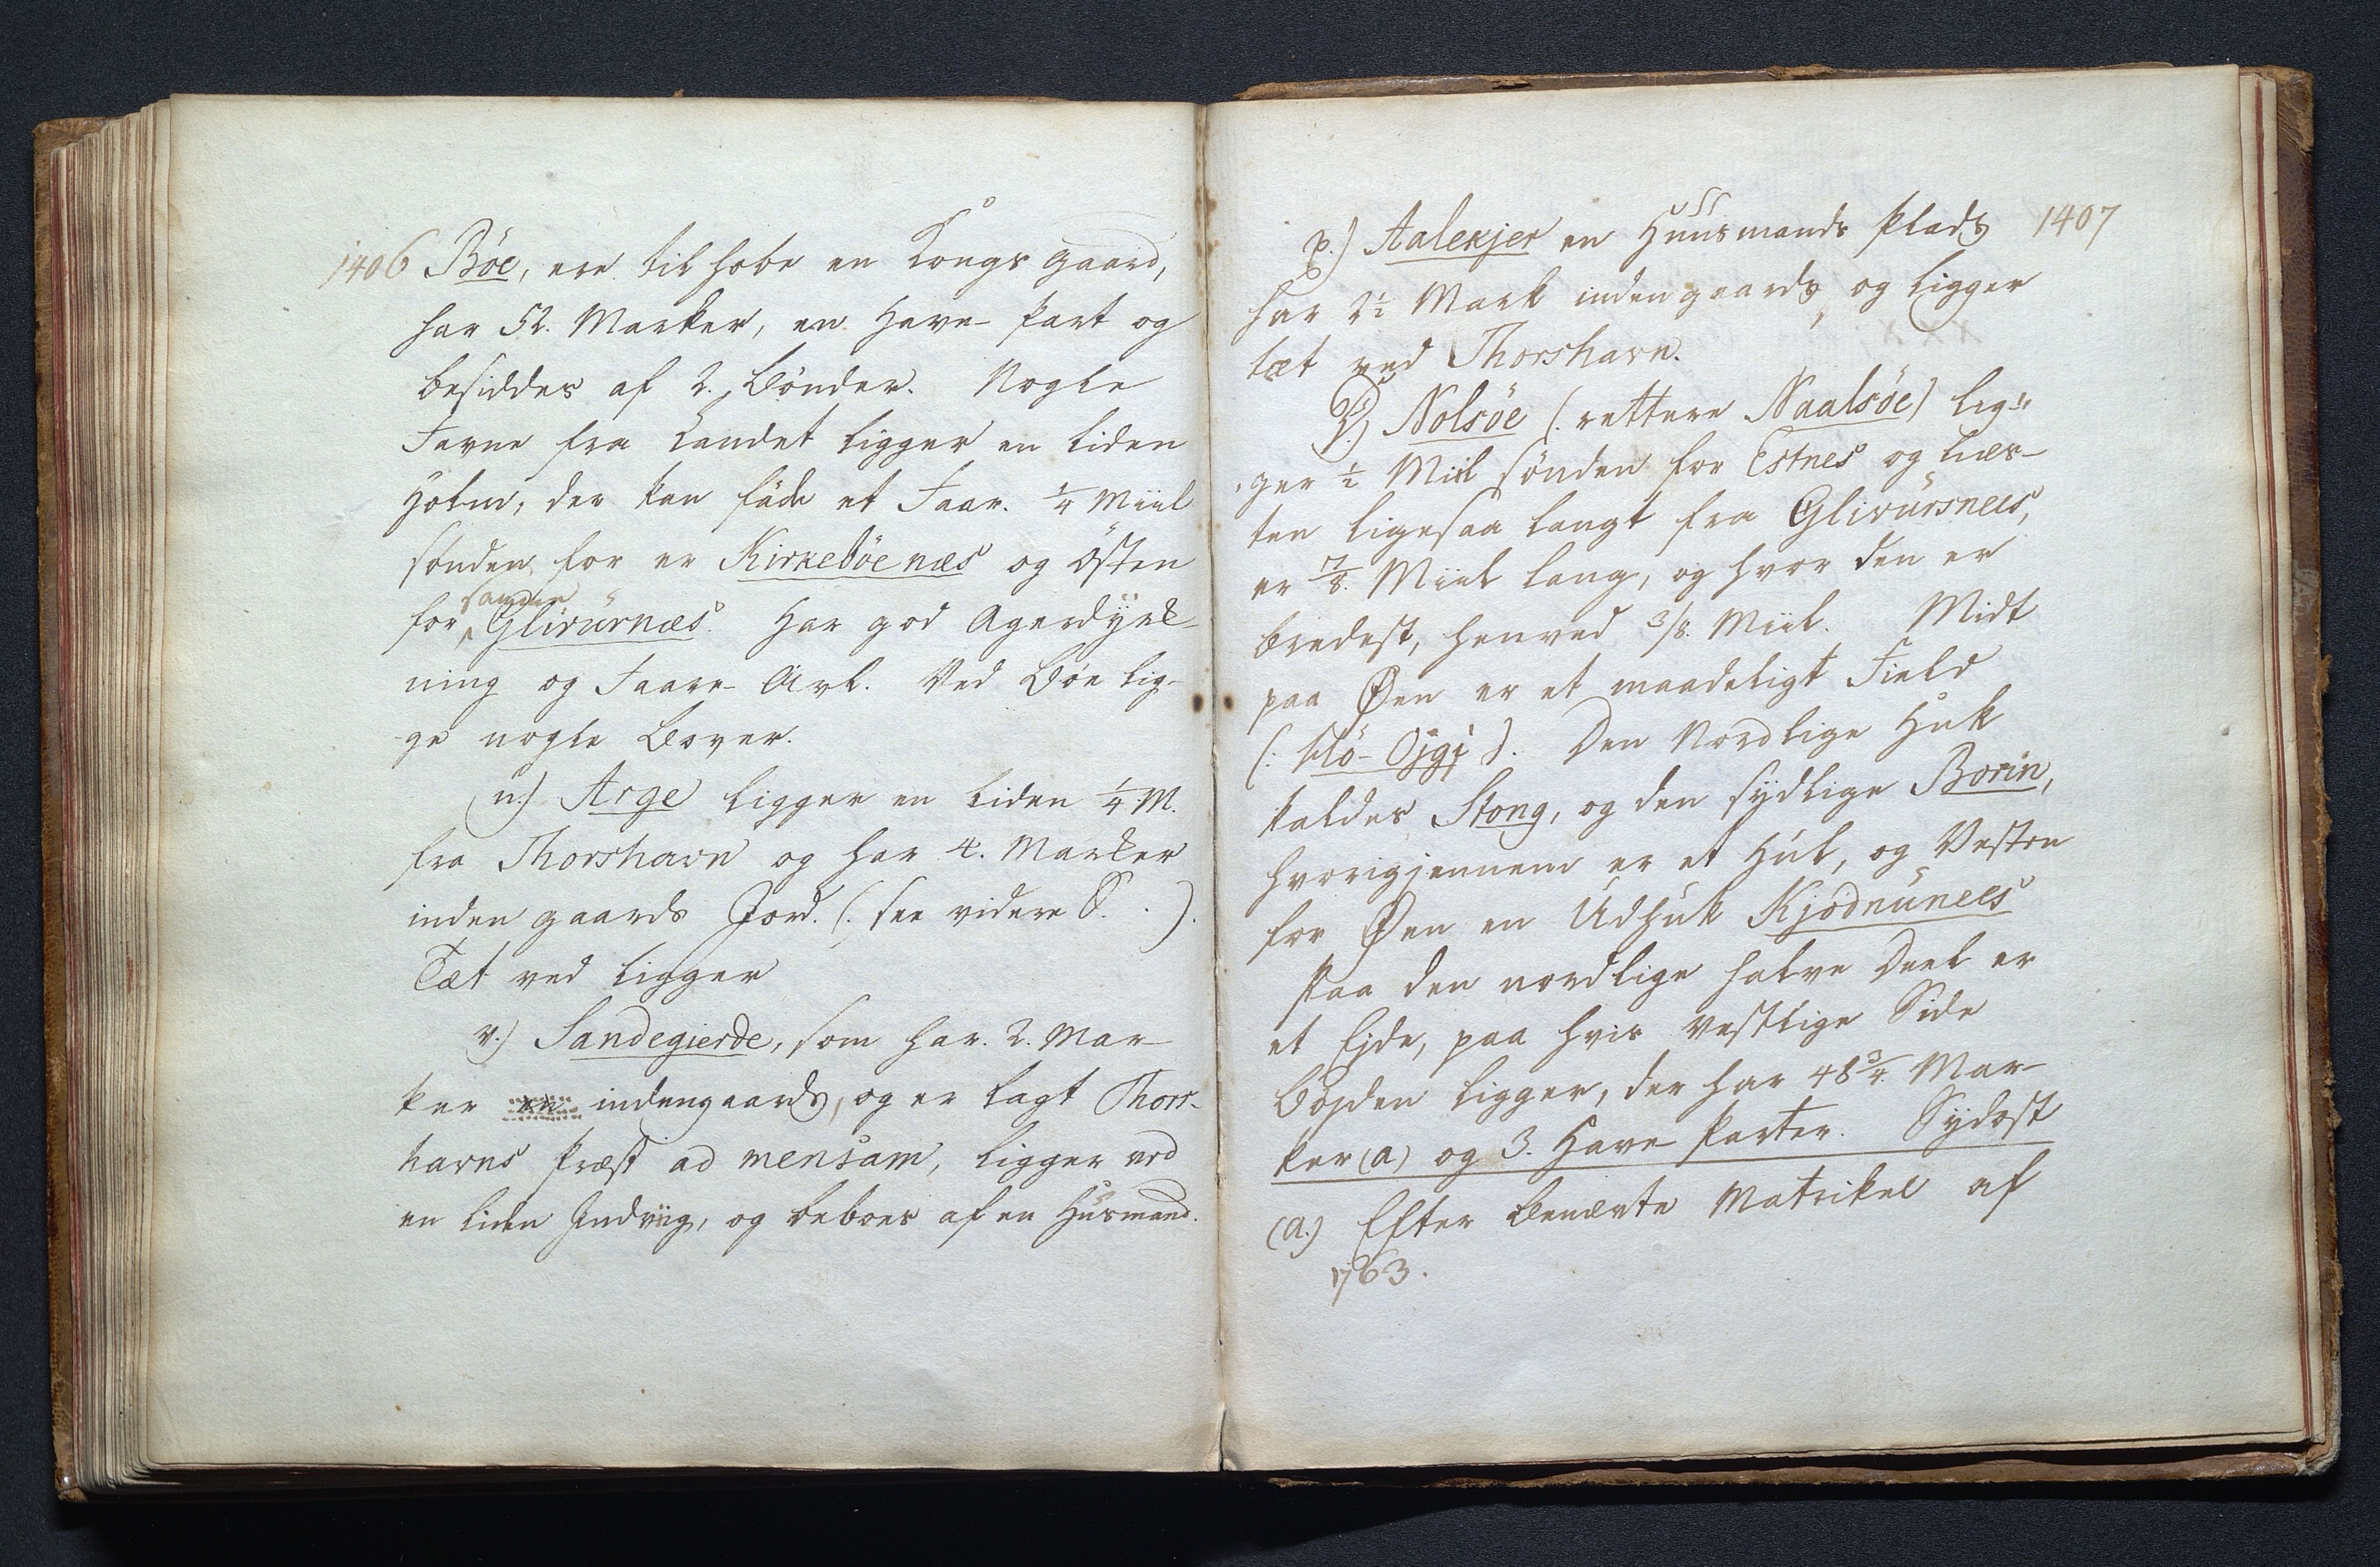 1406 Böe, ere tilhobe en Kongs gaard,
har 52. Marker, en Have-Part og
besiddes af 2. Bönder. Nogle
Favne fra Landet ligger en liden
Holm, der kan föde et Faar. 1/4 Miil
sönden for er Kirkeböenæs og Östen
for samme Glivursnæs. Har god Agerdyrk-
ning og Faare-Avl. Ved Böe lig-
ge nogle Bover.
u.) Arge ligger en liden 1/4 M.
fra Thorshavn og har 4. Marker
inden gaards Jord. (: see videre S. . ).
Tæt ved ligger
v.) Sandegierde, som har. 2. Mar-
ker indengaards, og er lagt Thors-
havns Præst ad mensam, ligger ved
en liden Indviig, og beboes af en Husmand.
1407
x.) Aalekjer en Huusmands Plads
har 2 1/2 Mark indengaards, og ligger
tæt ved Thorshavn.
D.) Nolsöe (: rettere Naalsöe) lig-
ger 1/2 Miil sönden for Estnes og næs-
ten ligesaa langt fra Glivursnees,
er 7/8. Miil lang, og hvor den er
bredest, henved 3/8. Miil. Midt
paa Øen er et maadeligt Field
(: Klö-Ojgj). Den Nordlige Huk
kaldes Stong, og den sydlige Borin,
hvorigjennem er et Hul, og Vesten
for Øen en Udhuk Kjodnunees
Paa den nordlige halve Deel er
et Ejde, paa hvis vestlige Side
Bojden ligger, der har 48 3/4. Mar-
ker (a) og 3. Have Parter. Sydost
(a.) Efter Benævte Matrikel af
1763.